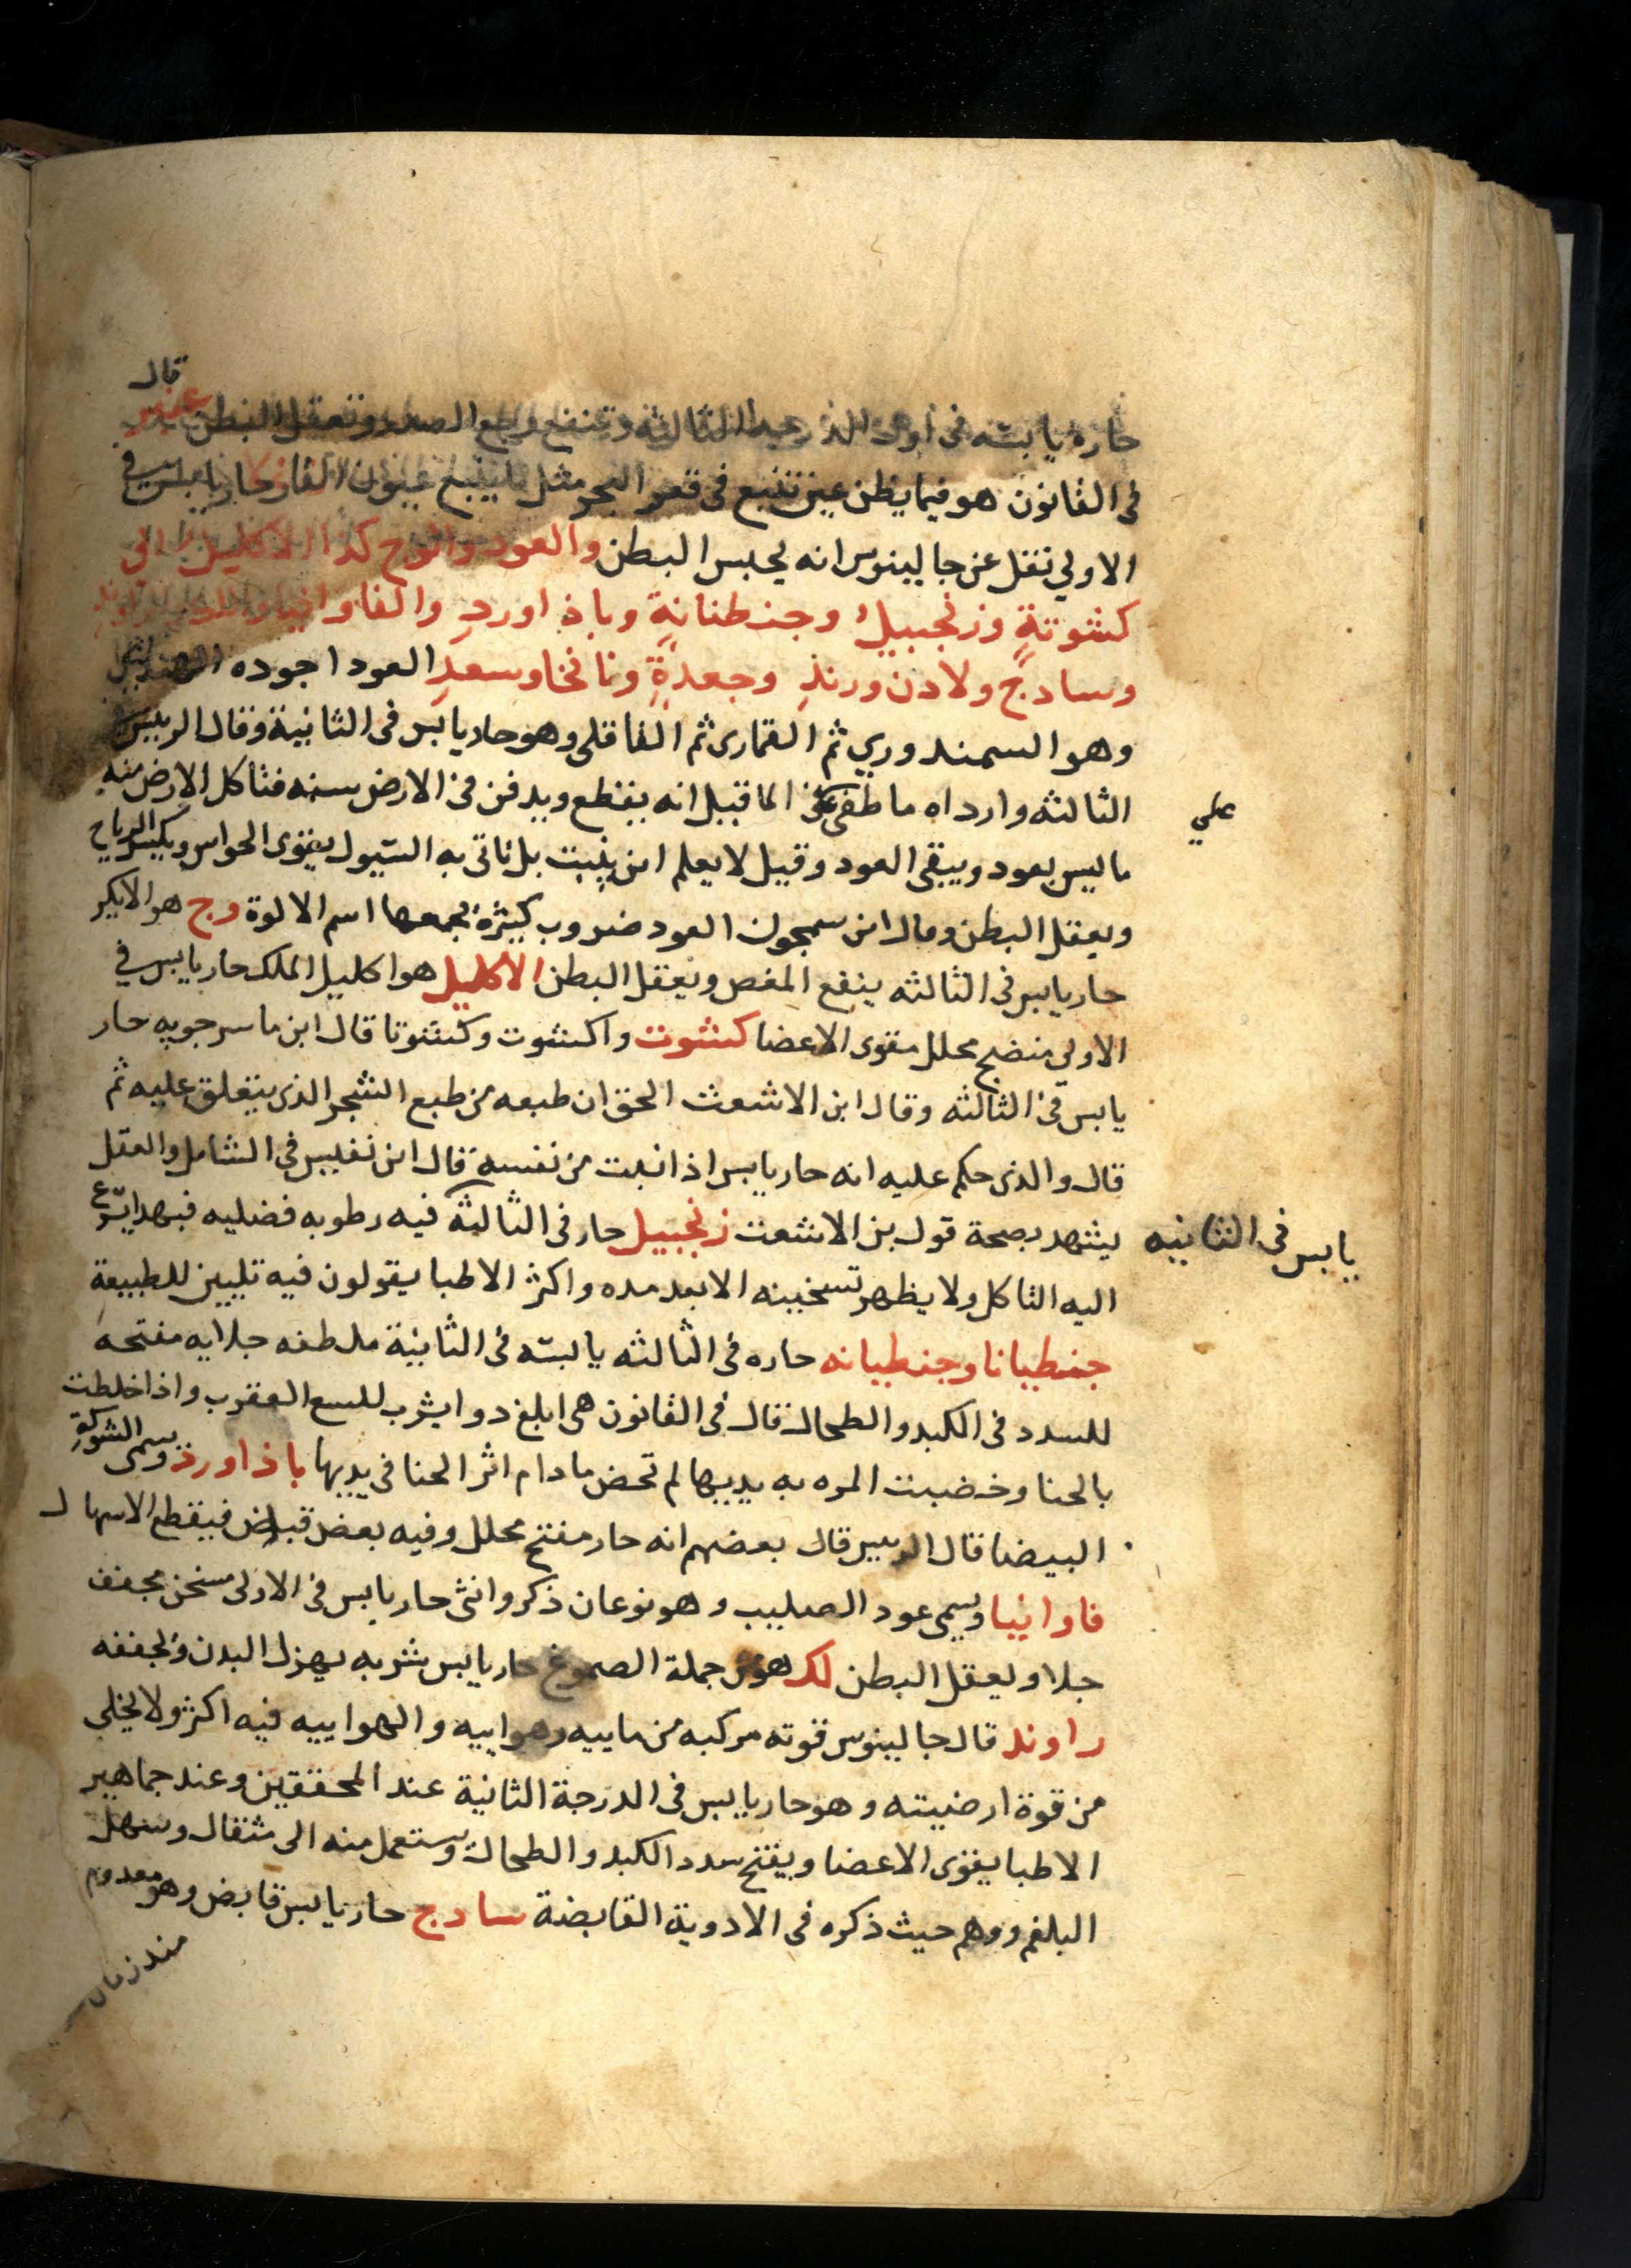 قال
حاره يابسه فى اول الدرجه الثالثه وتنفع وجع الصدر وتعقل البطن عنبر
فى القانون هو فيما يظن عين تنبع فى قعر البحر مثل ما ينبع عيون القار حار يابس في
الاولي نقل عن جالينوس انه يحبس البطن والعود والوج كذا الاكليل الي
كشوتةٍ وزنجبيلٌ وجنطنانةٍ وباذاوردِ والفاوانيا
وسادجٌ ولادن ورندِ وجعدةٍ ونانخا وسعدِ العود اجوده الهندي
وهو السمندوري ثم القمارى ثم القاقلى وهو حار يابس فى الثانية وقال الرييس في
الثالثه وارداه ما طفى على الما قيل انه يقطع ويدفن فى الارض سنه فتاكل الارض منه
علي
ما ليس بعود ويبقى العود وقيل لا يعلم اين ينبت بل تاتى به السيول يقوى الحواس ويكسر الرياح
ويعقل البطن وقال ابن سمجون العود ضروب كثيرة يجمعها اسم الالوة وج هو الايكر
حار يابس فى الثالثه ينفع المغص ويعقل البطن الاكليل هو اكليل الملك حار يابس في
الاولي منضج محلل مقوى الاعضا كشوت واكشوت وكشوتا قال ابن ماسرجويه حار
يابس فى الثالثه وقال ابن الاشعث الحق ان طبعه من طبع الشجر الذى يتعلق عليه ثم
قال والذى حكم عليه انه حار يابس اذا نبت من نفسه قال ابن نفيس فى الشامل والعقل
يشهد بصحة قول بن الاشعث زنجبيل حار فى الثالثة فيه رطوبه فضليه فبهدا يسرع
يابس فى الثانيه
اليه التاكل ولا يظهر تسخينه الا بعد مده واكثر الاطبا يقولون فيه تليين للطبيعة
جنطيانا وجنطيانه حاره فى الثالثه يابسه فى الثانية ملطفه جلايه مفتحه
للسدد فى الكبد والطحال قال فى القانون هى ابلغ دوا يشرب للسع العقرب واذا خلطت
بالحنا وخضبت المره به يديها لم تحض ما دام اثر الحنا فى يديها باذاورد ويسمى الشوكة
البيضا قال الرييس قال بعضهم انه حار مفتح محلل وفيه بعض قباض فيقطع الاسهال
فاوانيا ويسمى عود الصليب وهو نوعان ذكر وانثى حار يابس فى الاولى مسخن مجفف
جلا ويعقل البطن لك هو من جملة الصموغ حار يابس شربه يهزل البدن ويجففه
راوند قال جالينوس قوته مركبه من ماييه وهواييه والهواييه فيه اكثر ولا يخلى
من قوة ارضيته وهو حار يابس فى الدرجة الثانية عند المحققين وعند جماهير
الاطبا يقوى الاعضا ويفتح سدد الكبد والطحال ويستعمل منه الى مثقال ويسهل
البلغم ووهم حيث ذكره فى الادوية القابضة سادج حار يابس قابض وهو معدوم
منذ زمان